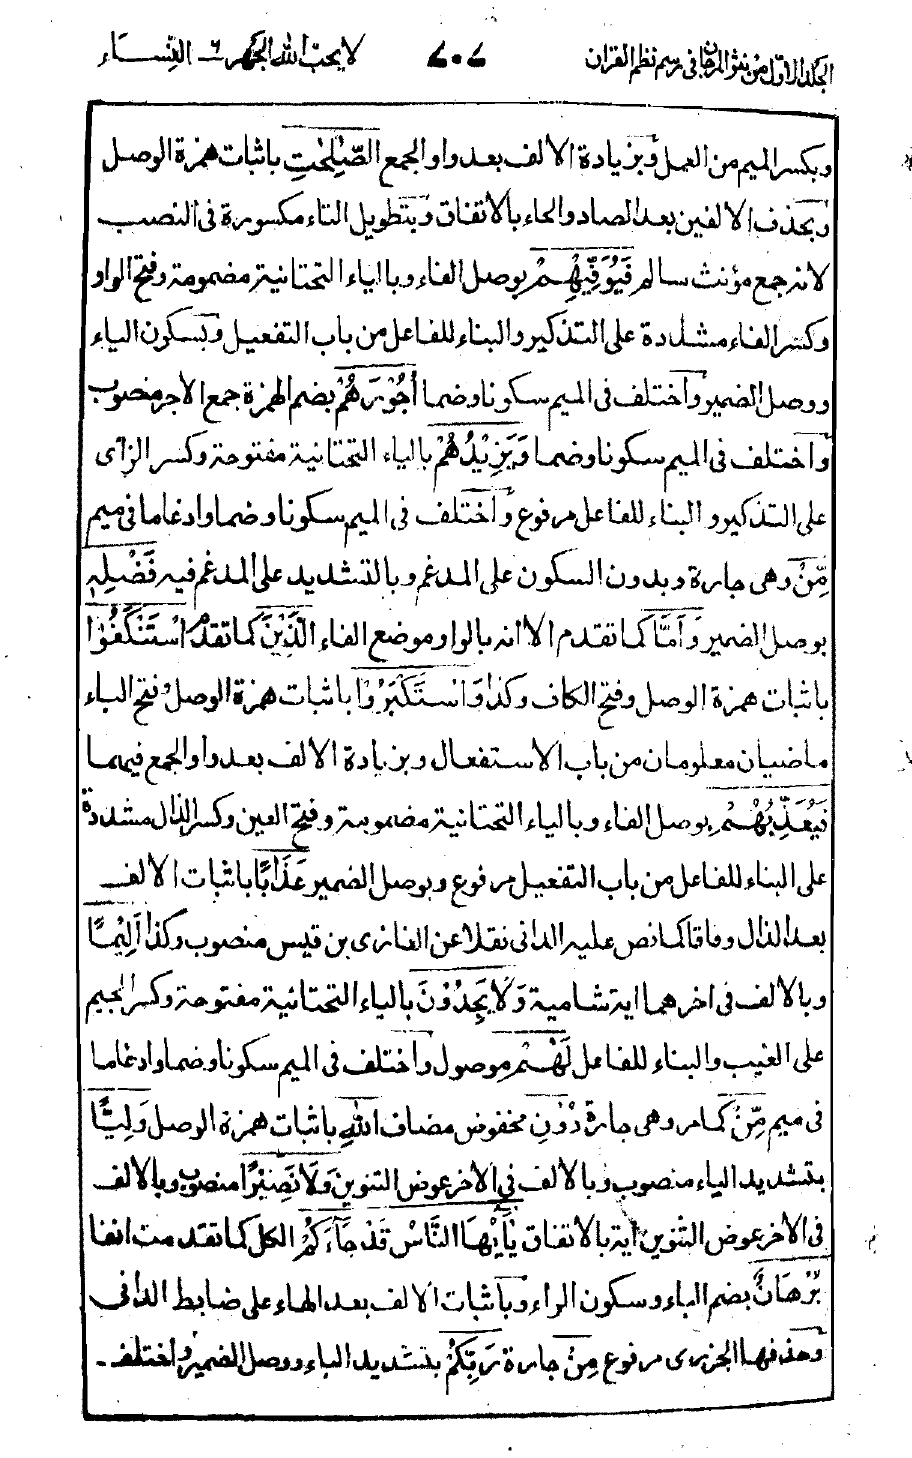 الجلد الاول من نثر المرجان فى رسم نظم القران ٧٠٧ لا يحب الله الجهر ٦ النساء
وبكسر الميم من العمل وبزيادة الالف بعد واو الجمع الصّٰلِحٰتِ باثبات همزة الوصل
وبحذف الالفين بعد الصاد والحاء بالاتفاق وبتطويل التاء مكسورة فى النصب
لانه جمع مؤنث سالم فَيُوَفِّيْهِمْ بوصل الفاء وبالياء التحتانية مضمومة وفتح الواو
وكسر الفاء مشددة على التذكير والبناء للفاعل من باب التفعيل وبسكون الياء
ووصل الضمير واختلف فى الميم سكونا وضما اُجُوْرَهُمْ بضم الهمزة جمع الاجر منصوب
واختلف فى الميم سكونا وضما وَيَزِيْدُهُمْ بالياء التحتانية مفتوحة وكسر الزاى
على التذكير والبناء للفاعل مرفوع واختلف فى الميم سكونا وضما وادغاما فى ميم
مِّنْ وهى جارة وبدون السكون على المدغم وبالتشديد على المدغم فيه فَضْلِهٖ
بوصل الضمير وَاَمَّا كما تقدم الا انه بالواو موضع الفاء الَّذِيْنَ كما تقدم اسْتَنْكَفُوْا
باثبات همزة الوصل وفتح الكاف وكذا وَاسْتَكْبَرُوْا باثبات همزة الوصل وفتح الباء
ماضيان معلومان من باب الاستفعال وبزيادة الالف بعد واو الجمع فيهما
فَيُعَذِّبُهُمْ بوصل الفاء وبالياء التحتانية مضمومة وفتح العين وكسر الذال مشددة
على البناء للفاعل من باب التفعيل مرفوع وبوصل الضمير عَذَابًا باثبات الالف
بعد الذال وفاقا كما نص عليه الدانى نقلا عن الغازى بن قيس منصوب وكذا اَلِيْمًا
وبالالف فى اخرهما اية شامية وَلَا يَجِدُوْنَ بالياء التحتانية مفتوحة وكسر الجيم
على الغيب والبناء للفاعل لَهُمْ موصول واختلف فى الميم سكونا وضما وادغاما
فى ميم مِّنْ كما مر وهى جارة دُوْنِ مخفوض مضاف اللهِ باثبات همزة الوصل وَلِيًّا
بتشديد الياء منصوب وبالالف فى الاخر عوض التنوين وَلَا نَصِيْرًا منصوب وبالالف
فى الاخر عوض التنوين اية بالاتفاق يٰاَيُّهَا النَّاسُ قَدْ جَآءَكُمْ الكل كما تقدمت انفا
بُرْهَانٌ بضم الباء وسكون الراء وباثبات الالف بعد الهاء على ضابط الدانى
وحذفها الجزرى مرفوع مِنْ جارة رَبِّكُمْ بتشديد الباء ووصل الضمير واختلف